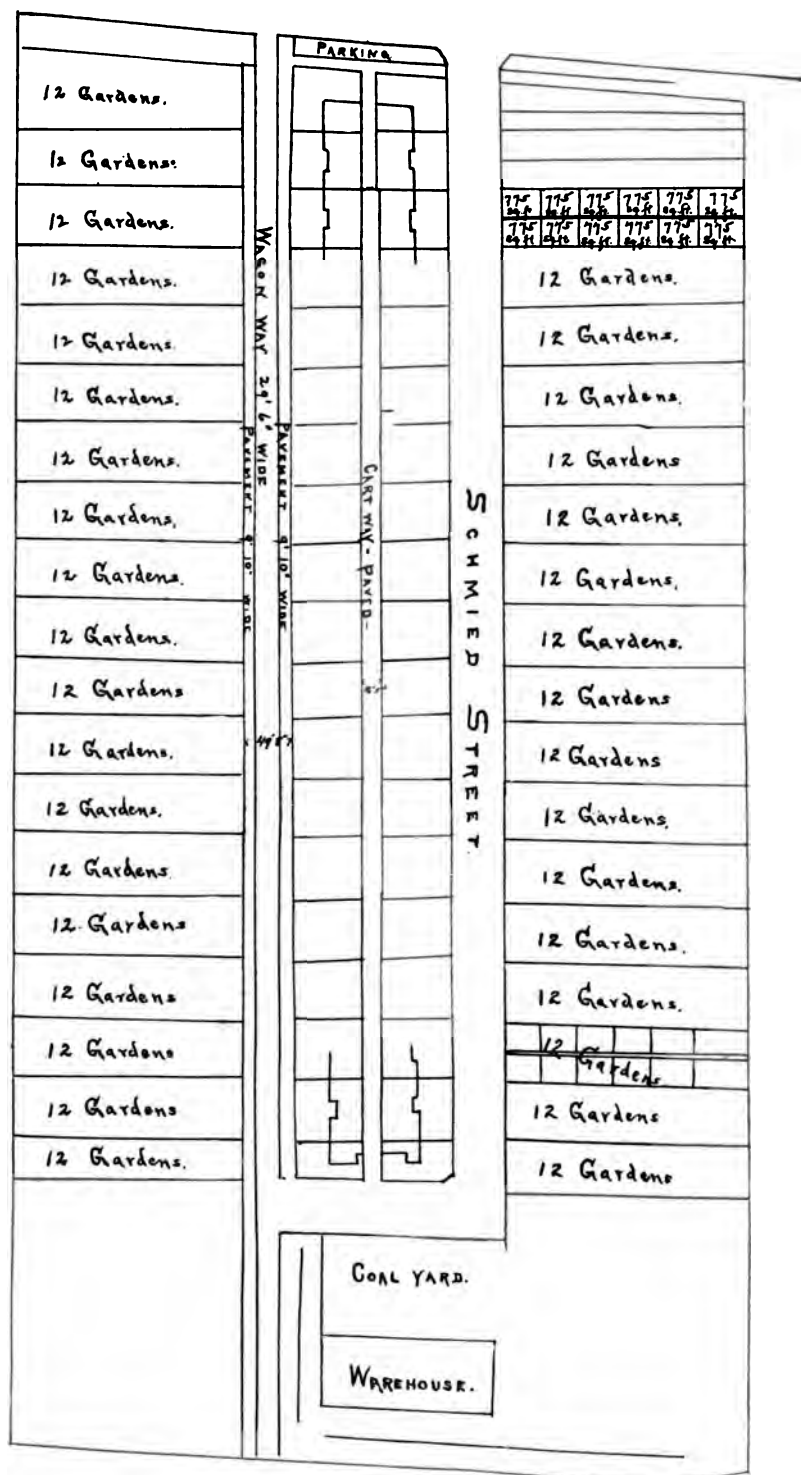 PARKING
12 Gardens.
12 Gardens.
12 Gardens.
12 Gardens.
12 Gardens.
12 Gardens.
12 Gardens.
12 Gardens.
12 Gardens.
12 Gardens.
12 Gardens
12 Gardens.
12 Gardens.
12 Gardens
12 Gardens
12 Gardens
12 Gardens
12 Gardens
12 Gardens.
WAGON WAY 29' 6" WIDE
PAVEMENT 9' 10" WIDE
PAVEMENT 9' 10" WIDE
CART WAY - PAVED -
SCHMIED STREET.
775 sq. ft. 775 sq. ft. 775 sq. ft. 775 sq. ft. 775 sq. ft. 775 sq. ft.
775 sq. ft. 775 sq. ft. 775 sq. ft. 775 sq. ft. 775 sq. ft. 775 sq. ft.
12 Gardens.
12 Gardens.
12 Gardens.
12 Gardens
12 Gardens.
12 Gardens.
12 Gardens.
12 Gardens
12 Gardens
12 Gardens.
12 Gardens.
12 Gardens.
12 Gardens.
12 Gardens
12 Gardens
12 Gardens
COAL YARD.
WAREHOUSE.